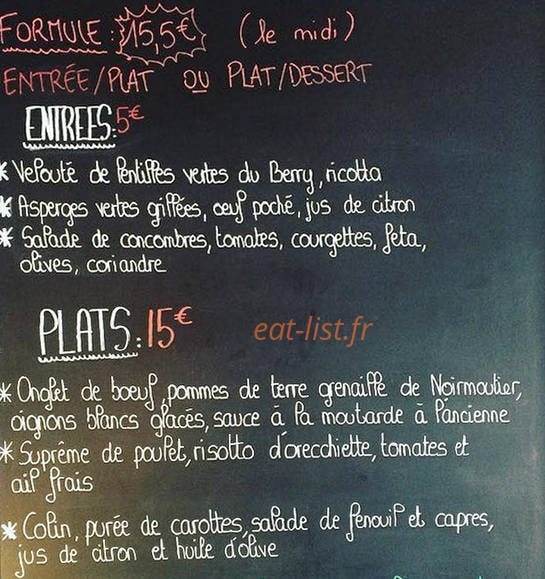 FORMULE : 15,5€ (le midi)
ENTRÉE/PLAT OU PLAT/DESSERT
ENTREES: 5€
* Velouté de lentilles vertes du Berry, ricotta
* Asperges vertes grillées, oeuf poché, jus de citron
* Salade de concombres, tomates, courgettes, feta,
olives, coriandre
PLATS: 15€
eat-list.fr
* Onglet de boeuf, pommes de terre grenaille de Noirmoutier,
oignons blancs glacés, sauce à la moutarde à l'ancienne
* Suprême de poulet, risotto d'orecchiette, tomates et
ail frais
* Colin, purée de carottes, salade de fenouil et capres,
jus de citron et huile d'olive